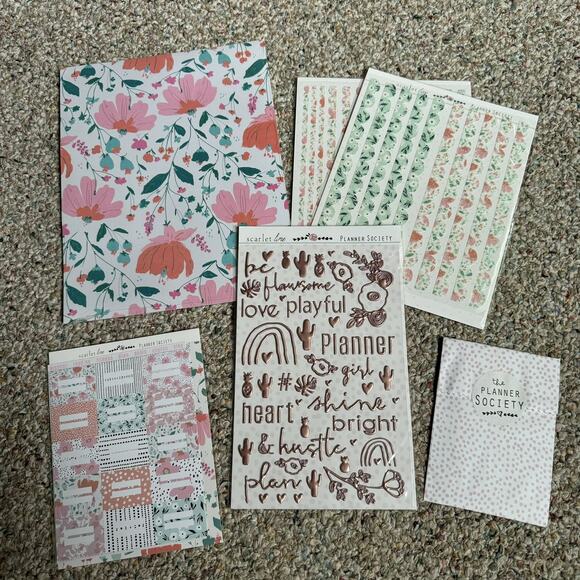 scarlet lime PLANNER SOCIETY
be
flawsome
love playful
Planner
girl
#
heart shine
bright
& hustle
plan
scarlet lime PLANNER SOCIETY
the
PLANNER
SOCIETY